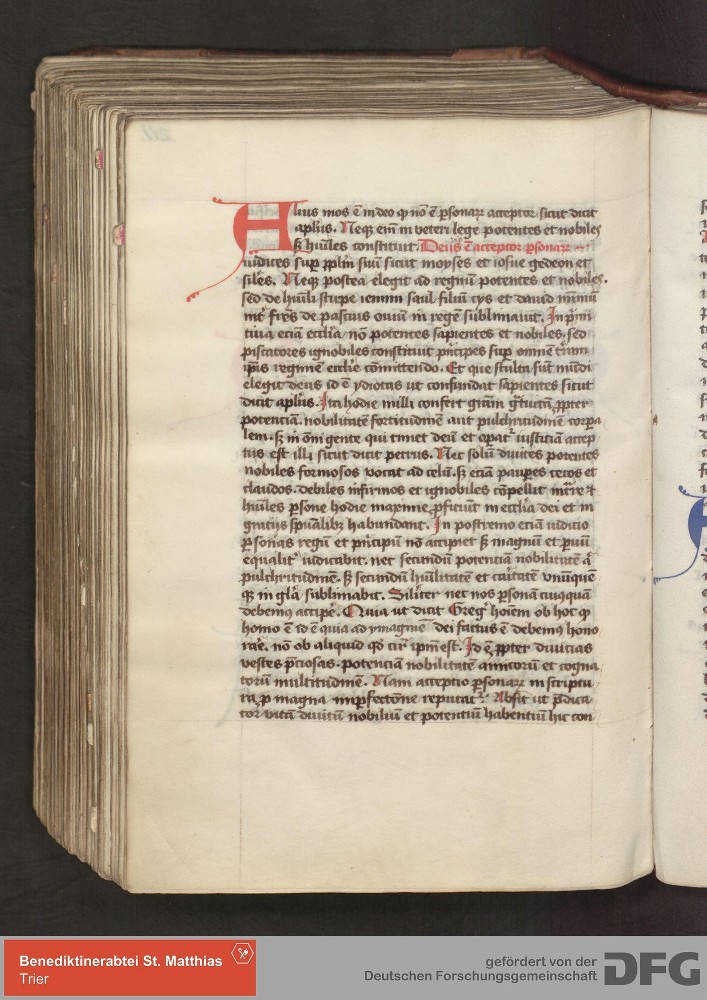 Alius mos ē in deo qꝫ nō ē ꝑsonaꝝ acceptor sicut dicit
apl̄us. Neqꝫ eni᷒ in veteri lege potentes et nobiles
sꝫ hūiles constituit. Deus ē acceptor ꝑsonaꝝ
iudices suꝑ ppl̄m suū sicut moyses et iosue gedeon et
siles. Neqꝫ postea elegit ad regnū potentes et nobiles.
sed de hūili stirpe iemini saul filiū cys et dauid minimū
int̄ fr̄es de pascuis ouiū in regē sublimauit. In p̄mi
tiua eciā eccl̄ia nō potentes sapientes et nobiles. sed
piscatores ignobiles constituit p̄ncipes suꝑ omnē t̄ram
ip̄is regimē eccl̄ie cōmittendo. Et que stulta sūt mūdi
elegit deus id ē ydiotas ut confundat sapientes sicut
dicit apl̄us. Ita hodie nulli confert gr̄am gͣtuitā ꝓpter
potenciā. nobilitatē fortitudinē aut pulchritudinē corpa
lem. sꝫ in om̄i gente qui timet deū et oꝑat᷒ iusticiā accep
tus est illi sicut dicit petrus. Nec solū diuites potentes
nobiles formosos vocat ad celū. sꝫ eciā pauꝑes cecos et
claudos. debiles infirmos et ignobiles cōpellit int̄re et
hūiles ꝑsone hodie maxime ꝓficiūt in eccl̄ia dei et in
graciis sp̄ualibꝫ habundant. In postremo eciā iudicio
ꝑsonas regū et p̄ncipū nō accipiet sꝫ magnū et ꝑuū
equalit᷒ iudicabit. nec secundū potenciā nobilitatē aͭ
pulchritudinē. sꝫ secundū hūilitatē et caritatē vnūque
qꝫ in gl̄a sublimabit. Silīter nec nos ꝑsonā cuiusquā
debemꝰ accipe᷒. Quia ut dicit Greg᷒ hoīem ob hoc qꝫ
homo ē id ē quia ad ymaginē dei factus ē debemꝰ hono
rare. nō ob aliquid qd᷒ cir᷒ ip̄m est. Id ē ꝓpter diuicias
vestes p̄ciosas. potenciā nobilitatē amicorū et cogna
torū multitudinē. Nam acceptio ꝑsonaꝝ in scriptu
ra ꝓ magna imꝑfectiōne reputat᷒. Absit ut p̄dica
tor vitā diuitū nobiliū et potentiū habentiū hic con
Benediktinerabtei St. Matthias
Trier
gefördert von der
Deutschen Forschungsgemeinschaft
DFG